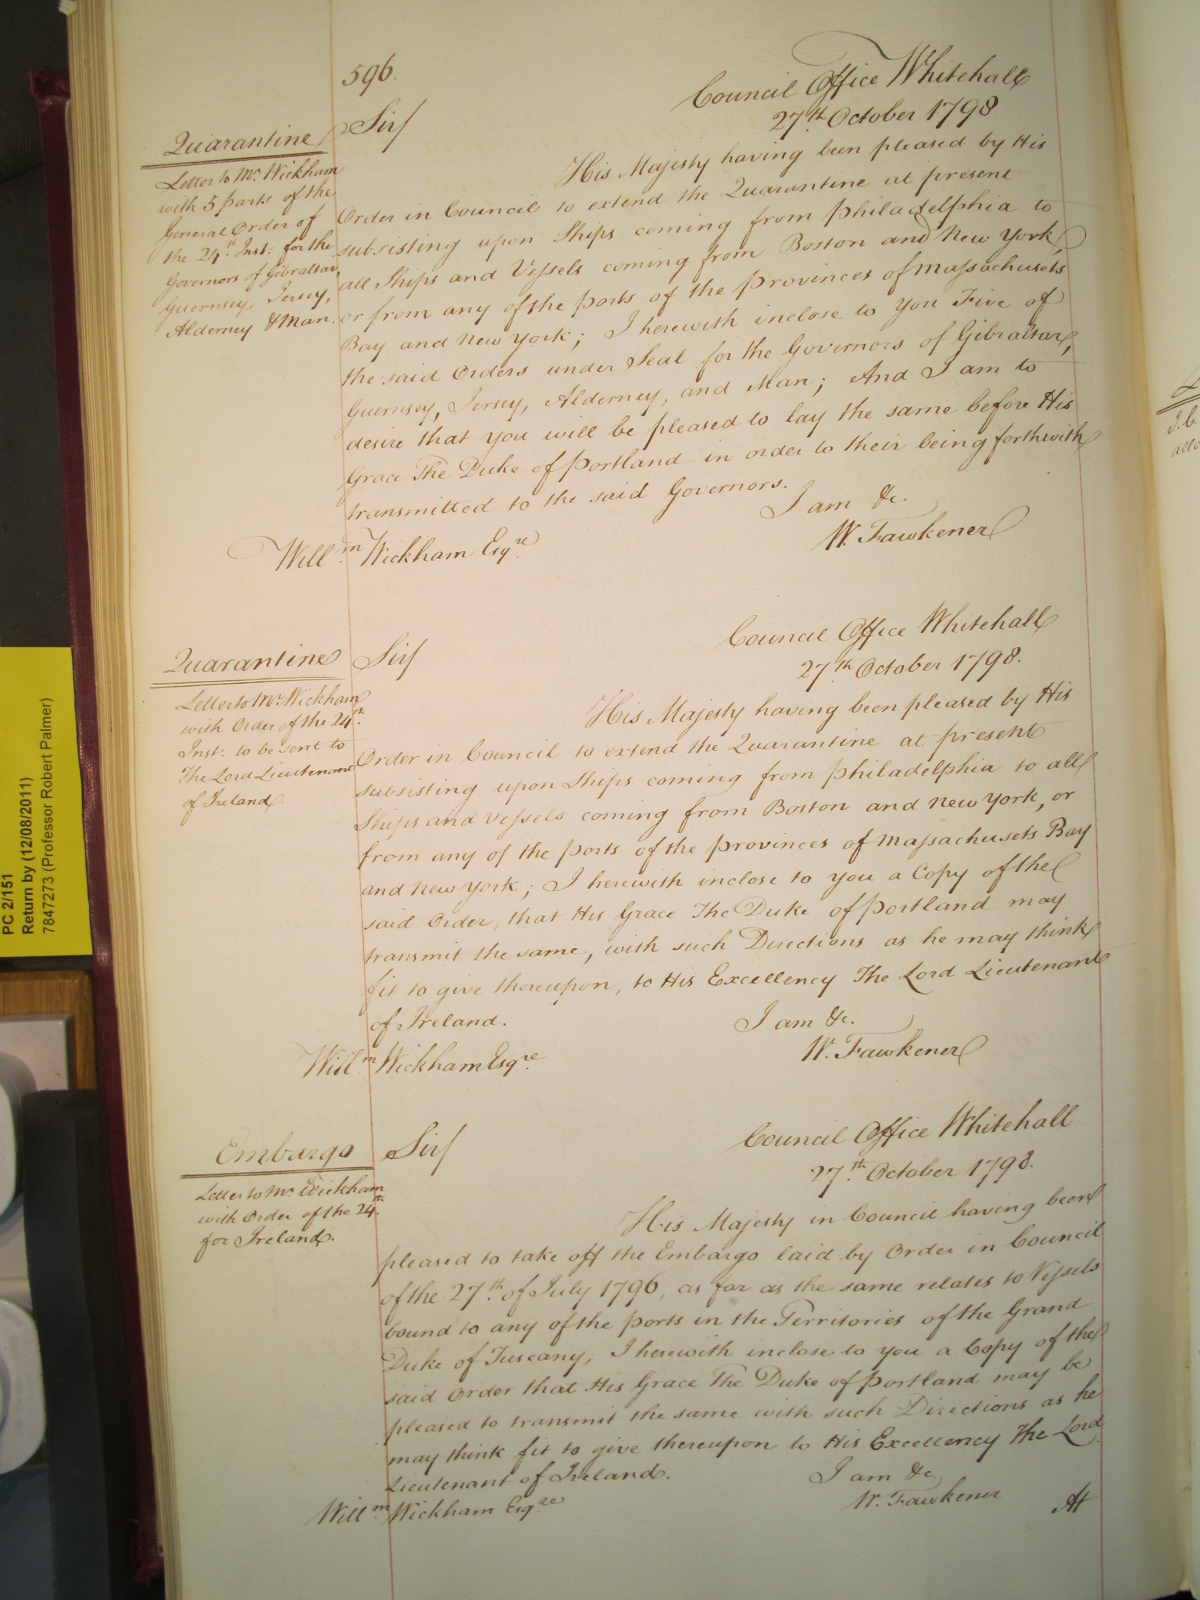 596.
Council Office Whitehall
27th October 1798
Sir/
Quarantine
Letter to Mr. Wickham
with 5 parts of the
General Order of
the 24th Inst: for the
Governors of Gibraltar,
Guernsey, Jersey,
Alderney & Man.
His Majesty having been pleased by His
Order in Council to extend the Quarantine at present
subsisting upon Ships coming from Philadelphia to
all Ships and Vessels coming from Boston and New York,
or from any of the ports of the provinces of Massachusets
Bay and New York; I herewith inclose to You Five of
the said Orders under Seal for the Governors of Gibraltar,
Guernsey, Jersey, Alderney, and Man; And I am to
desire that you will be pleased to lay the same before His
Grace The Duke of Portland in order to their being forthwith
transmitted to the said Governors.
I am &c.
W. Fawkener
Willm. Wickham Esqre.
Council Office Whitehall
27th October 1798.
Quarantine
Sir/
Letter to Mr. Wickham
with Order of the 24th.
Inst: to be sent to
The Lord Lieutenant
of Ireland.
His Majesty having been pleased by His
Order in Council to extend the Quarantine at present
subsisting upon Ships coming from Philadelphia to all
Ships and Vessels coming from Boston and New York, or
from any of the ports of the provinces of Massachusets Bay
and New York; I herewith inclose to you a Copy of the
said Order, that His Grace The Duke of Portland may
transmit the same, with such Directions as he may think
fit to give thereupon, to His Excellency The Lord Lieutenant
of Ireland.
I am &c.
W. Fawkener
Willm. Wickham Esqre.
Council Office Whitehall
27th. October 1798.
Embargo
Sir/
Letter to Mr. Wickham
with Order of the 24th.
for Ireland.
His Majesty in Council having been
pleased to take off the Embargo laid by Order in Council
of the 27th. of July 1796, as far as the same relates to Vessels
bound to any of the ports in the Territories of the Grand
Duke of Tuscany, I herewith inclose to you a Copy of the
said Order that His Grace The Duke of Portland may be
pleased to transmit the same with such Directions as he
may think fit to give thereupon to His Excellency The Lord
Lieutenant of Ireland.
I am &c.
W. Fawkener
Willm. Wickham Esqre
At
PC 2/151
Return by (12/08/2011)
7847273 (Professor Robert Palmer)